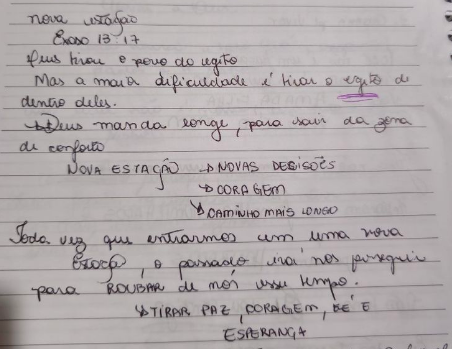 nova estação
Êxodo 13:17
Deus tirou o povo do egito
Mas a maior dificuldade é tirar o egito de
dentro deles.
↳ Deus manda longe, para sair da zona
de conforto
NOVA ESTAÇÃO → NOVAS DECISÕES
↳ CORAGEM
↳ CAMINHO MAIS LONGO
Toda vez que entrarmos em uma nova
Estação, o passado irá nos perseguir
para ROUBAR de nós esse tempo.
↳ TIRAR PAZ, CORAGEM, FÉ E
ESPERANÇA